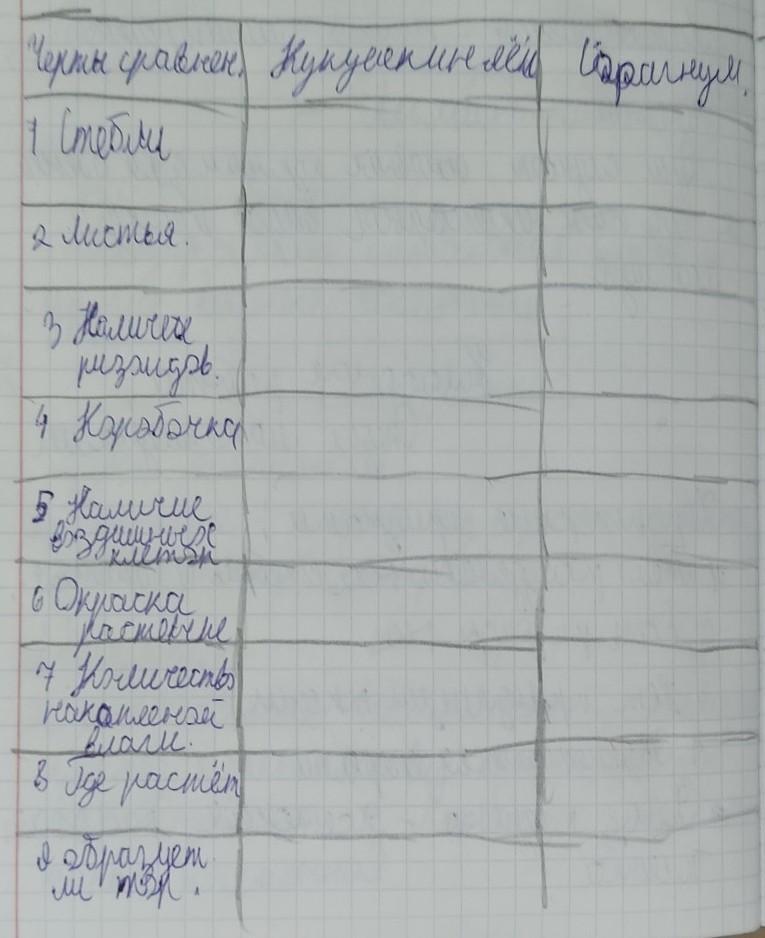 Черты сравнен. Кукушкин лён Сфагнум.
1 Стебли
2 Листья.
3 Наличие
ризоидов.
4 Коробочка
5 Наличие
воздушных
клеток
6 Окраска
растение
7 Количество
накопленой
влаги.
8 Где растёт
9 образует
ли торф.